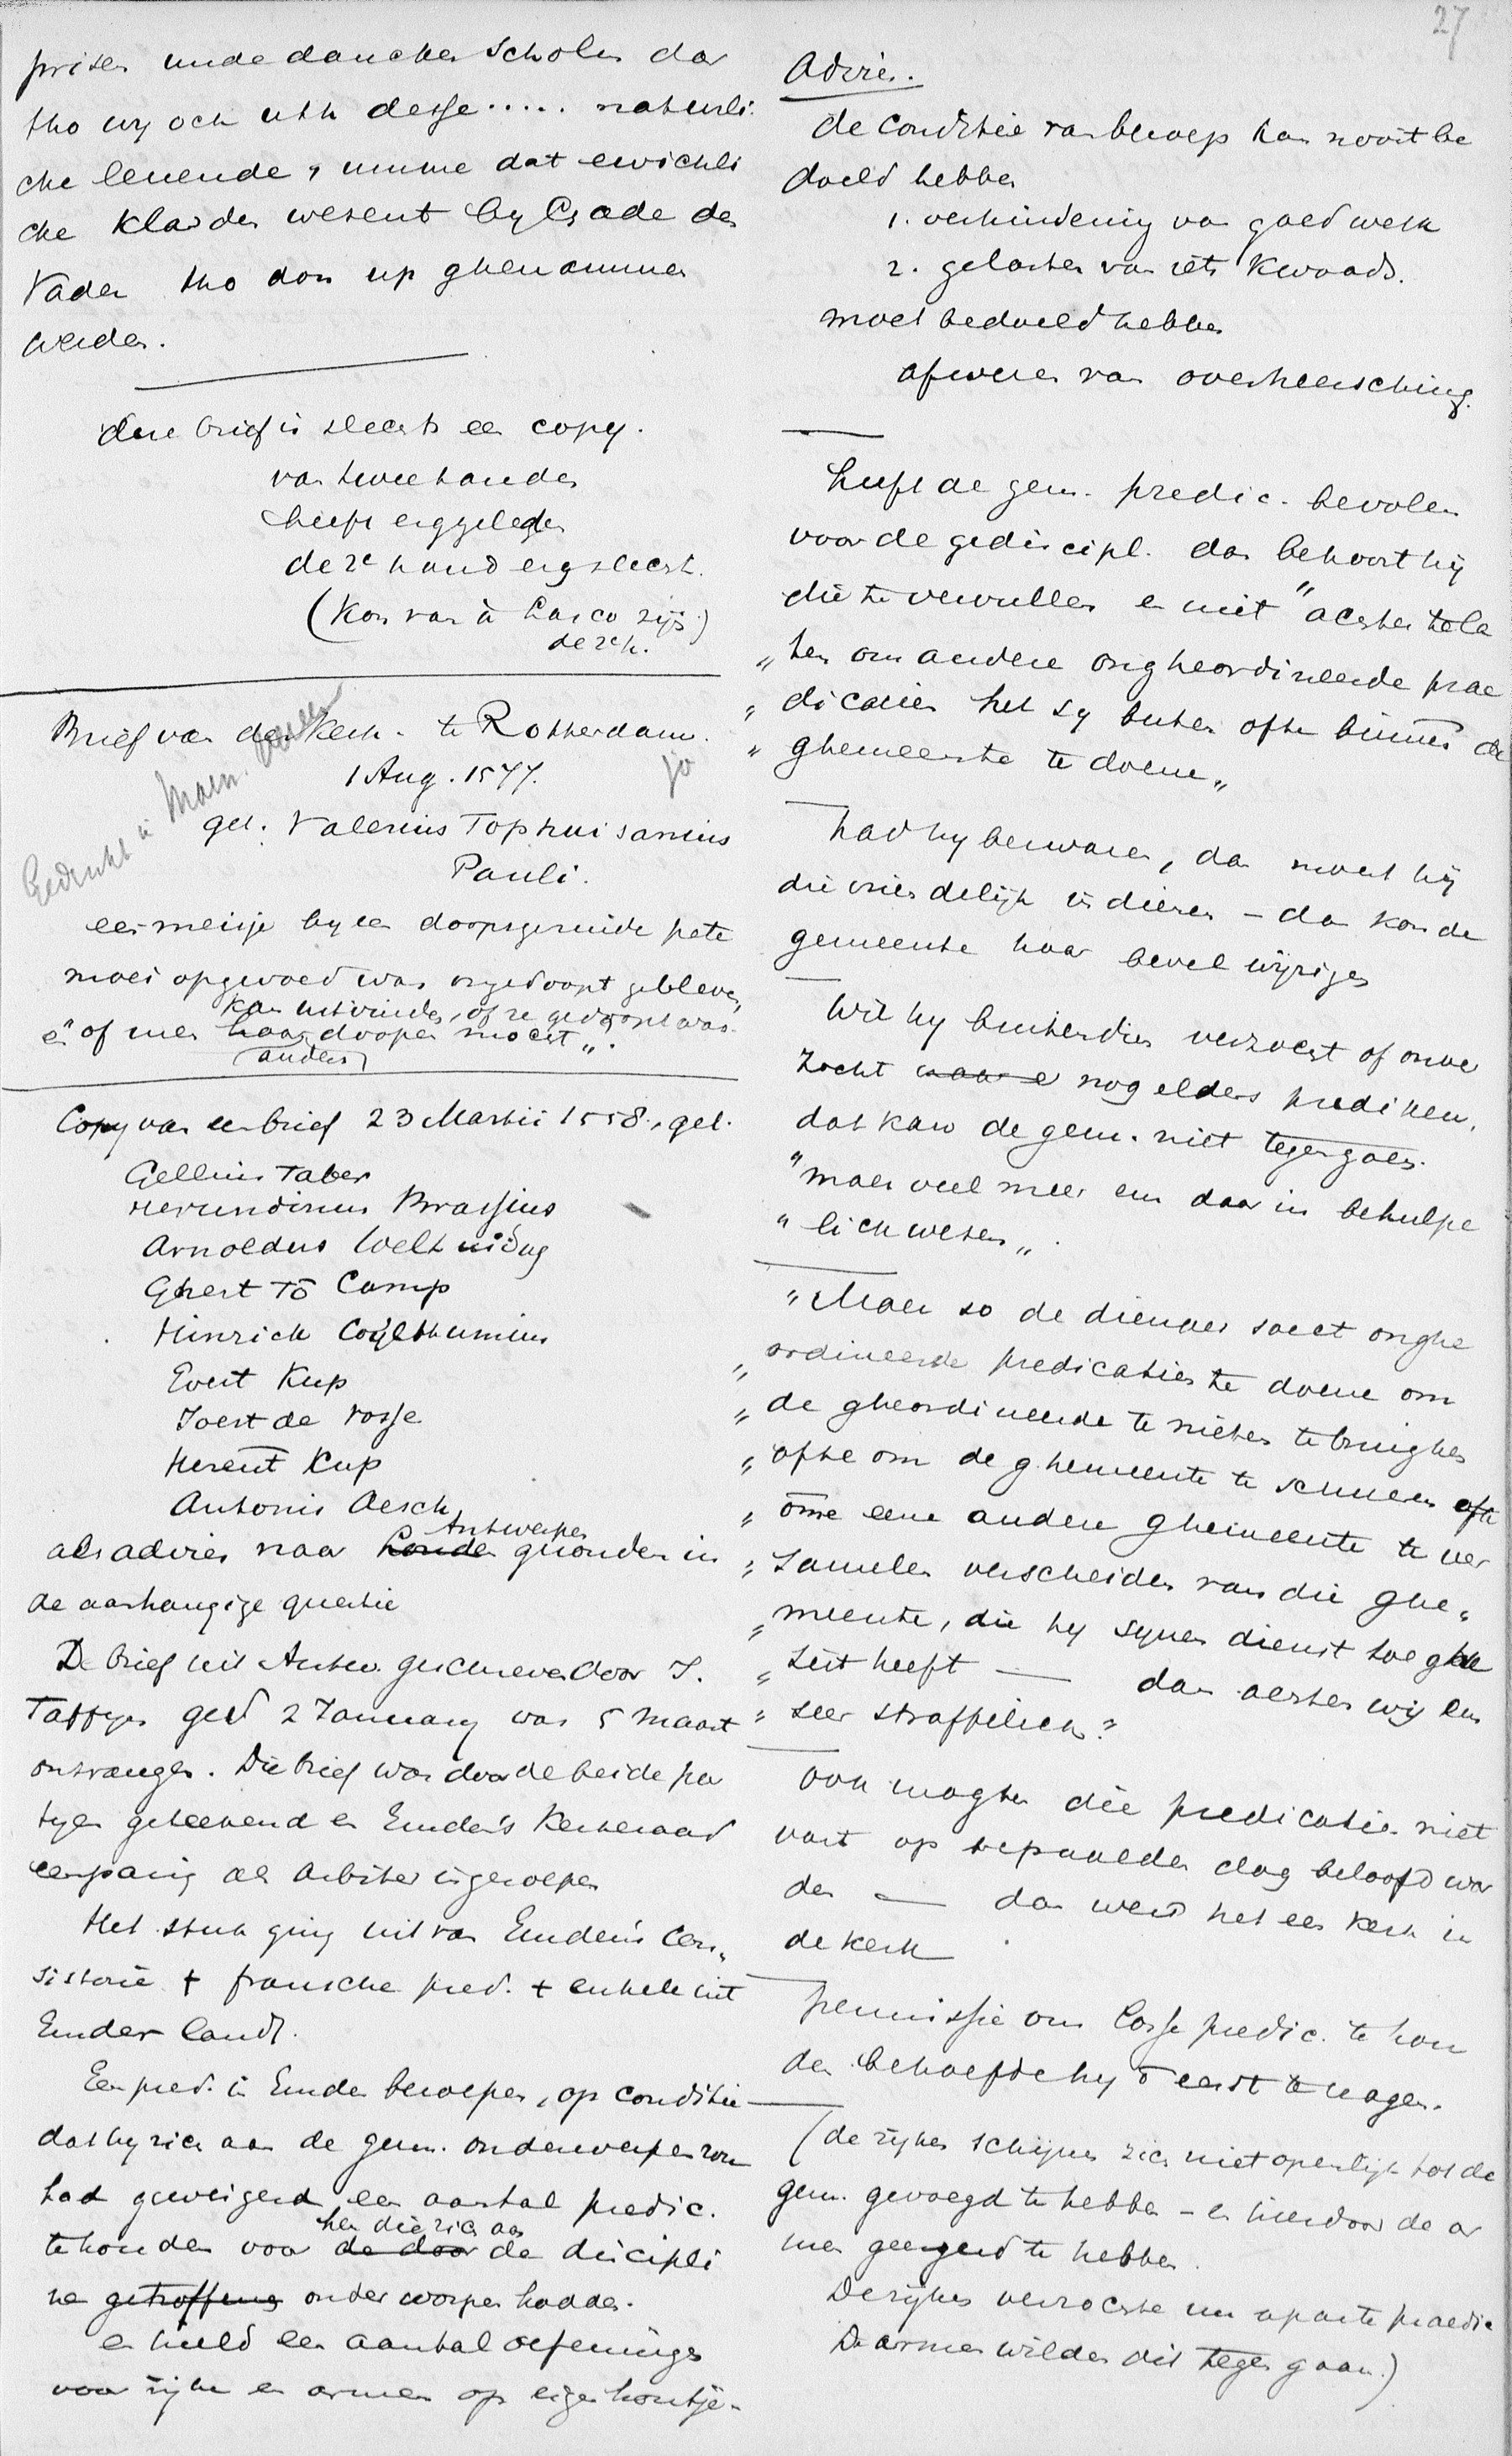 27
prisen unde dancken scholen dar
tho wy och uth desse ..... naturli
cke levende, umme dat ewichli
cke klarden wesent by Gade den
Vader tho don up ghenammen
werden.
deze brief is slechts een copy.
van twee handen
heeft erg geleden
de 2e hand erg slecht.
(Kon van à Lasco zijn)
de 2e h.
Brief van de Kerk te Rotterdam.
1 Aug. 1577.
ja
Gedrukt in Marn.
get. Valerius Tophuisanius
Pauli.
een meisje by een doopsgezinde pete
moei opgevoed was ongedoopt gebleven,
kan uitvinden, of ze gedoopt was.
en "of men haar doopen moest".
anders
Copy van een brief 23 Martii 1558, get.
Gellius Faber
Herundinus Brassius
Arnoldus Velt
Ghert Tō Camp
Hinrich
Evert Kup
Joest de Vosse
Herent Kup
Antonis Aesch
Antwerpen
als advies naar Londen gezonden in
de aanhangige questie
De brief uit Antw. geschreven door J.
Taffyn ged 2 January was 5 Maart
ontvangen. Die brief was door de beide par
tyen geteekend en Emden's Kerkeraad
eenparig als arbiter ingeroepen
Het stuk ging uit van Emden's Con„
sistorie + fransche pred. + enkele uit
Emder land.
Een pred. in Emden beroepen, op conditie
dat hy zich aan de gem. onderwerpen zou
had geweigerd een aantal predic.
hen die zich aan
te houden voor de door de discipli
ne getroffenes onderworpen hadden.
en hield een aantal oefenings
voor rijken en armen op eigen houtje.
Advies.
de conditie van beroep kan nooit be
doeld hebben
1. verhindering van goed werk
2. gelasten van iets kwaads.
moet bedoeld hebben
afweren van overheersching.
heeft de gem. predic. bevolen
voor de gediscipl. dan behoort hij
die te vervullen en niet "achter te la
„ten om andere ongheordineerde prae
„dicatien het sy buten ofte binnen de
„ghemeente te doene„
had hy bezwaren, dan moest hij
die vriendelijk indienen – dan kon de
gemeente haar bevel wijzigen
Wil hy buitendien verzocht of onver
zocht nog elders prediken,
dat kan de gem. niet tegengaen.
"maer veel meer em daar in behulpe
"lick wesen„.
"Maer so de dienaer soect onghe
„ordineerde predicatien te doene om
„de gheordineerde te nieten te bringhen
„ofte om de ghemeente te schueren ofte
„ōme eene andere ghemeente te ver
„samelen verscheiden van die ghe„
„meente, die hy synen dienst toeghe
„seit heeft — dan achten wij em
„seer straffelick."
Ook mogten die predicatien niet
vast op bepaalden dag beloofd wor
den — dan werd het een kerk in
de kerk
permissie om losse predic. te hou
den behoefde hy eerst te vragen.
(de rijken schijnen zich niet openlijk tot de
gem. gevoegd te hebben – en hierdoor de ar
men geergerd te hebben.
De rijken verzochten nu aparte praedic
De armen wilden dit tegen gaan.)